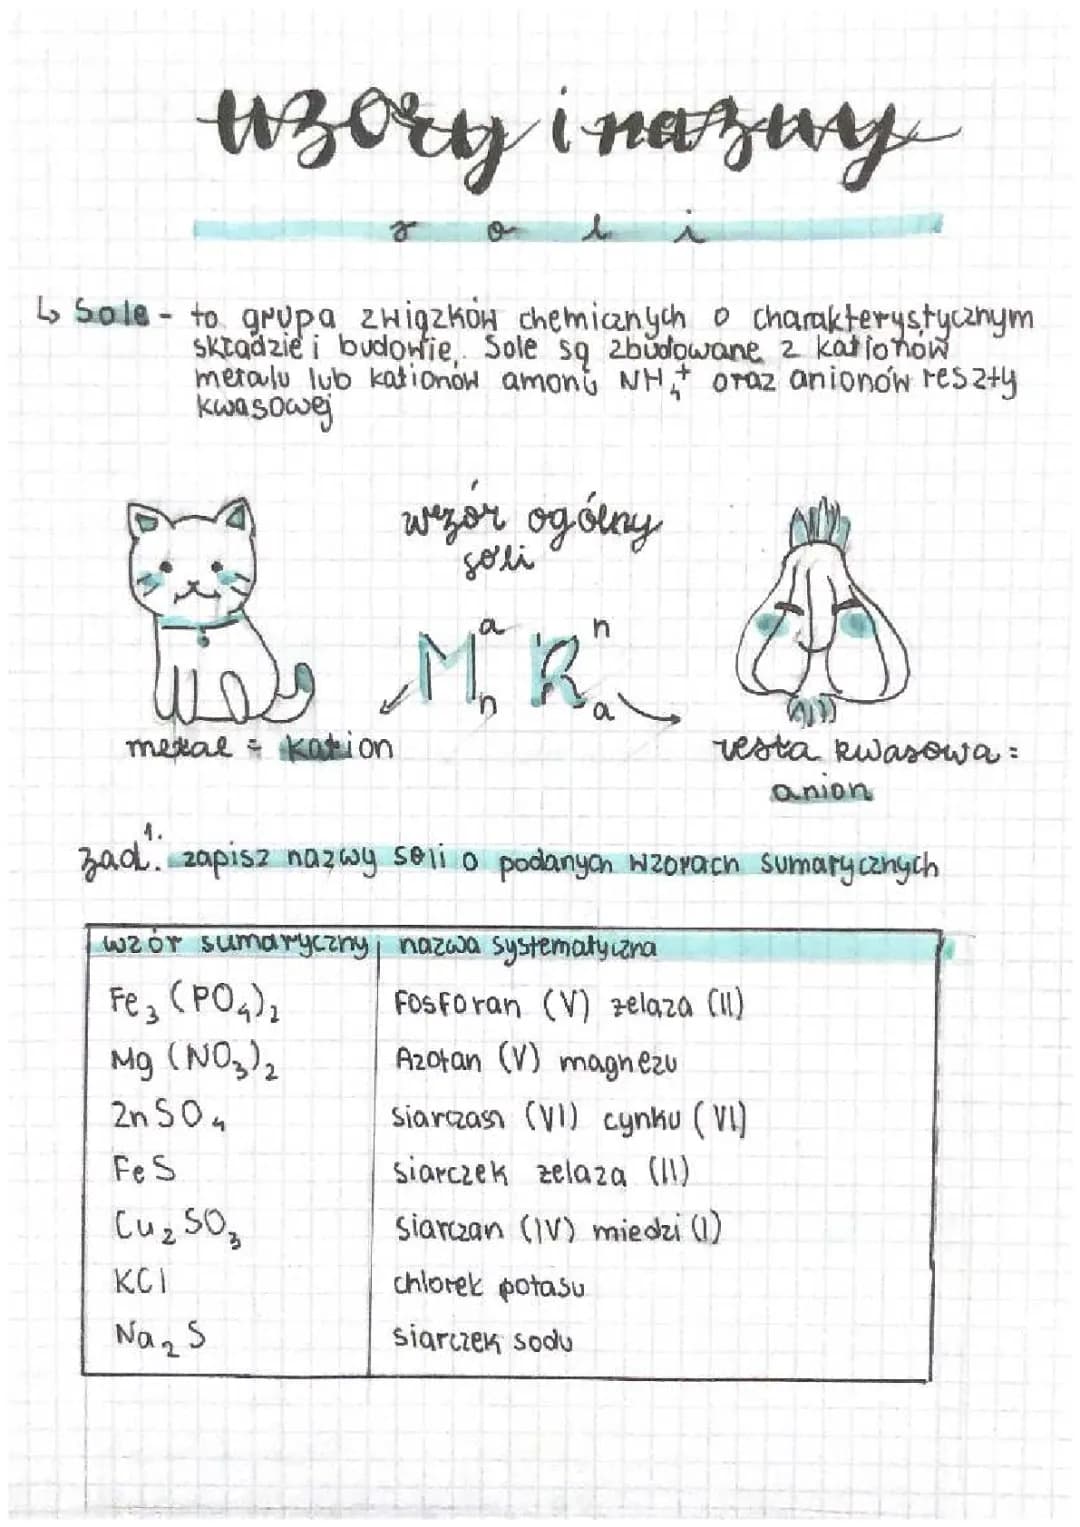 wzory i nazwy
soli
↳ Sole - to grupa związków chemicznych o charakterystycznym
składzie i budowie. Sole są zbudowane z kationów
metalu lub kationów amonu NH₄⁺ oraz anionów reszty
kwasowej
wzór ogólny
soli
Mₙᵃ Rₐⁿ
metal = kation
resta kwasowa =
anion
zad. 1. zapisz nazwy soli o podanych wzorach sumarycznych
wzór sumaryczny nazwa systematyczna
Fe₃(PO₄)₂ Fosforan (V) żelaza (II)
Mg(NO₃)₂ Azotan (V) magnezu
ZnSO₄ siarczan (VI) cynku (VI)
FeS siarczek żelaza (II)
Cu₂SO₃ siarczan (IV) miedzi (I)
KCl chlorek potasu
Na₂S siarczek sodu